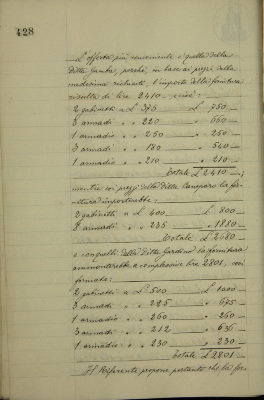 428
L'offerta più conveniente è quella della
Ditta Gambe, perché, in base ai prezzi della
medesima richiesti, l'importo della fornitura
risulta di lire 2410, cioè:
2 gabinetti a £ 375 £ 750
3 armadi " " 220 " 660
1 armadio " " 250 " 250
3 armadi " " 180 " 540
1 armadio " " 210 " 210
Totale £ 2410
mentre coi prezzi della Ditta Campara la for-
nitura importerebbe:
2 gabinetti a £ 400 £ 800
8 armadi " " 235 " 1880
Totale £ 2680
e con quelli della Ditta Gardino la fornitura
ammonterebbe a complessive lire 2801, così
formate:
2 gabinetti a £ 500 £ 1000
3 armadi " " 225 " 675
1 armadio " " 260 " 260
3 armadi " " 212 " 636
1 armadio " " 230 " 230
Totale £ 2801
Il Riferente propone pertanto che la for-